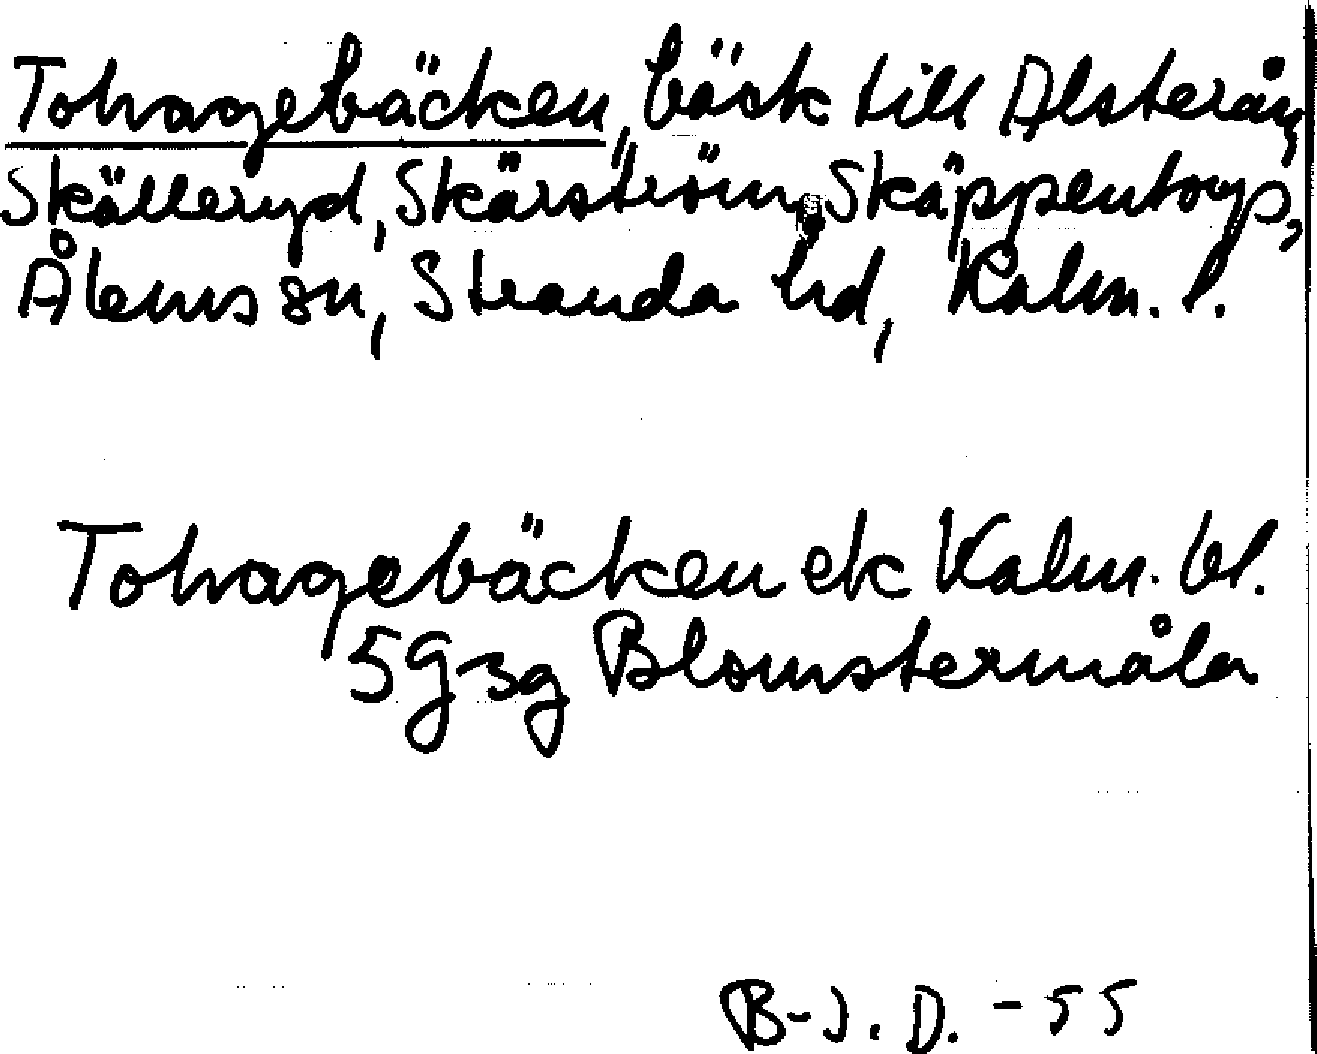 Tohagebäcken, bäck till Alsterån,
Skälleryd, Skärström, Skäppentorp,
Ålems sn, Stranda hd, Kalm. l.
Tohagebäcken ek Kalm. bl.
5G3g Blomstermåla
B-J. D. -55